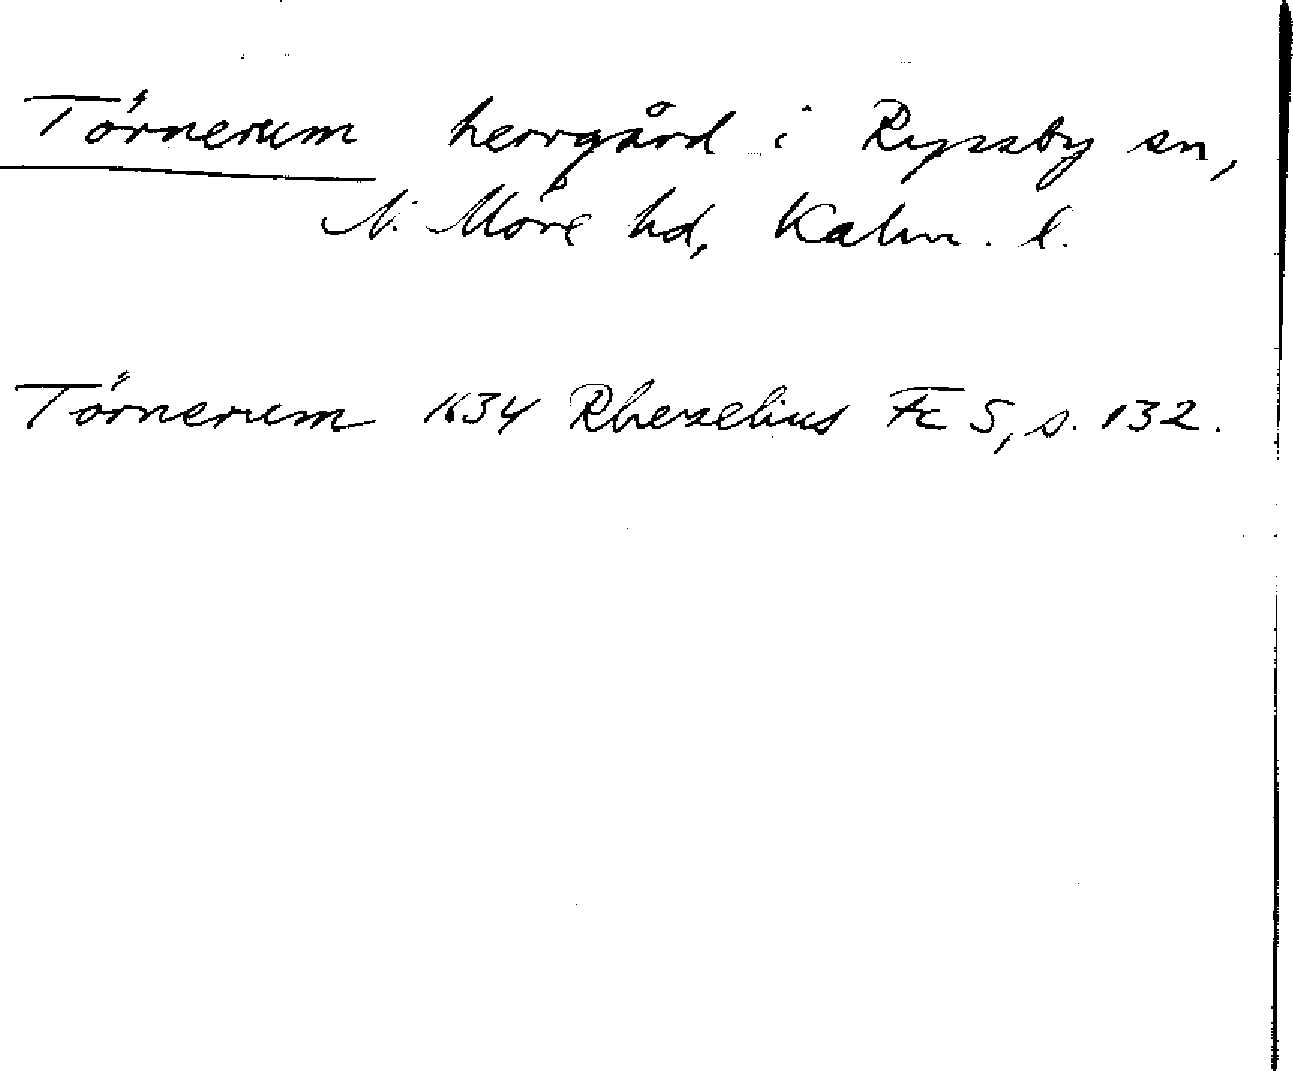 Törnerum herrgård i Ryssby sn,
N. Möre hd, Kalm. l.
Törnerum 1634 Rhezelius Fc 5, s. 132.